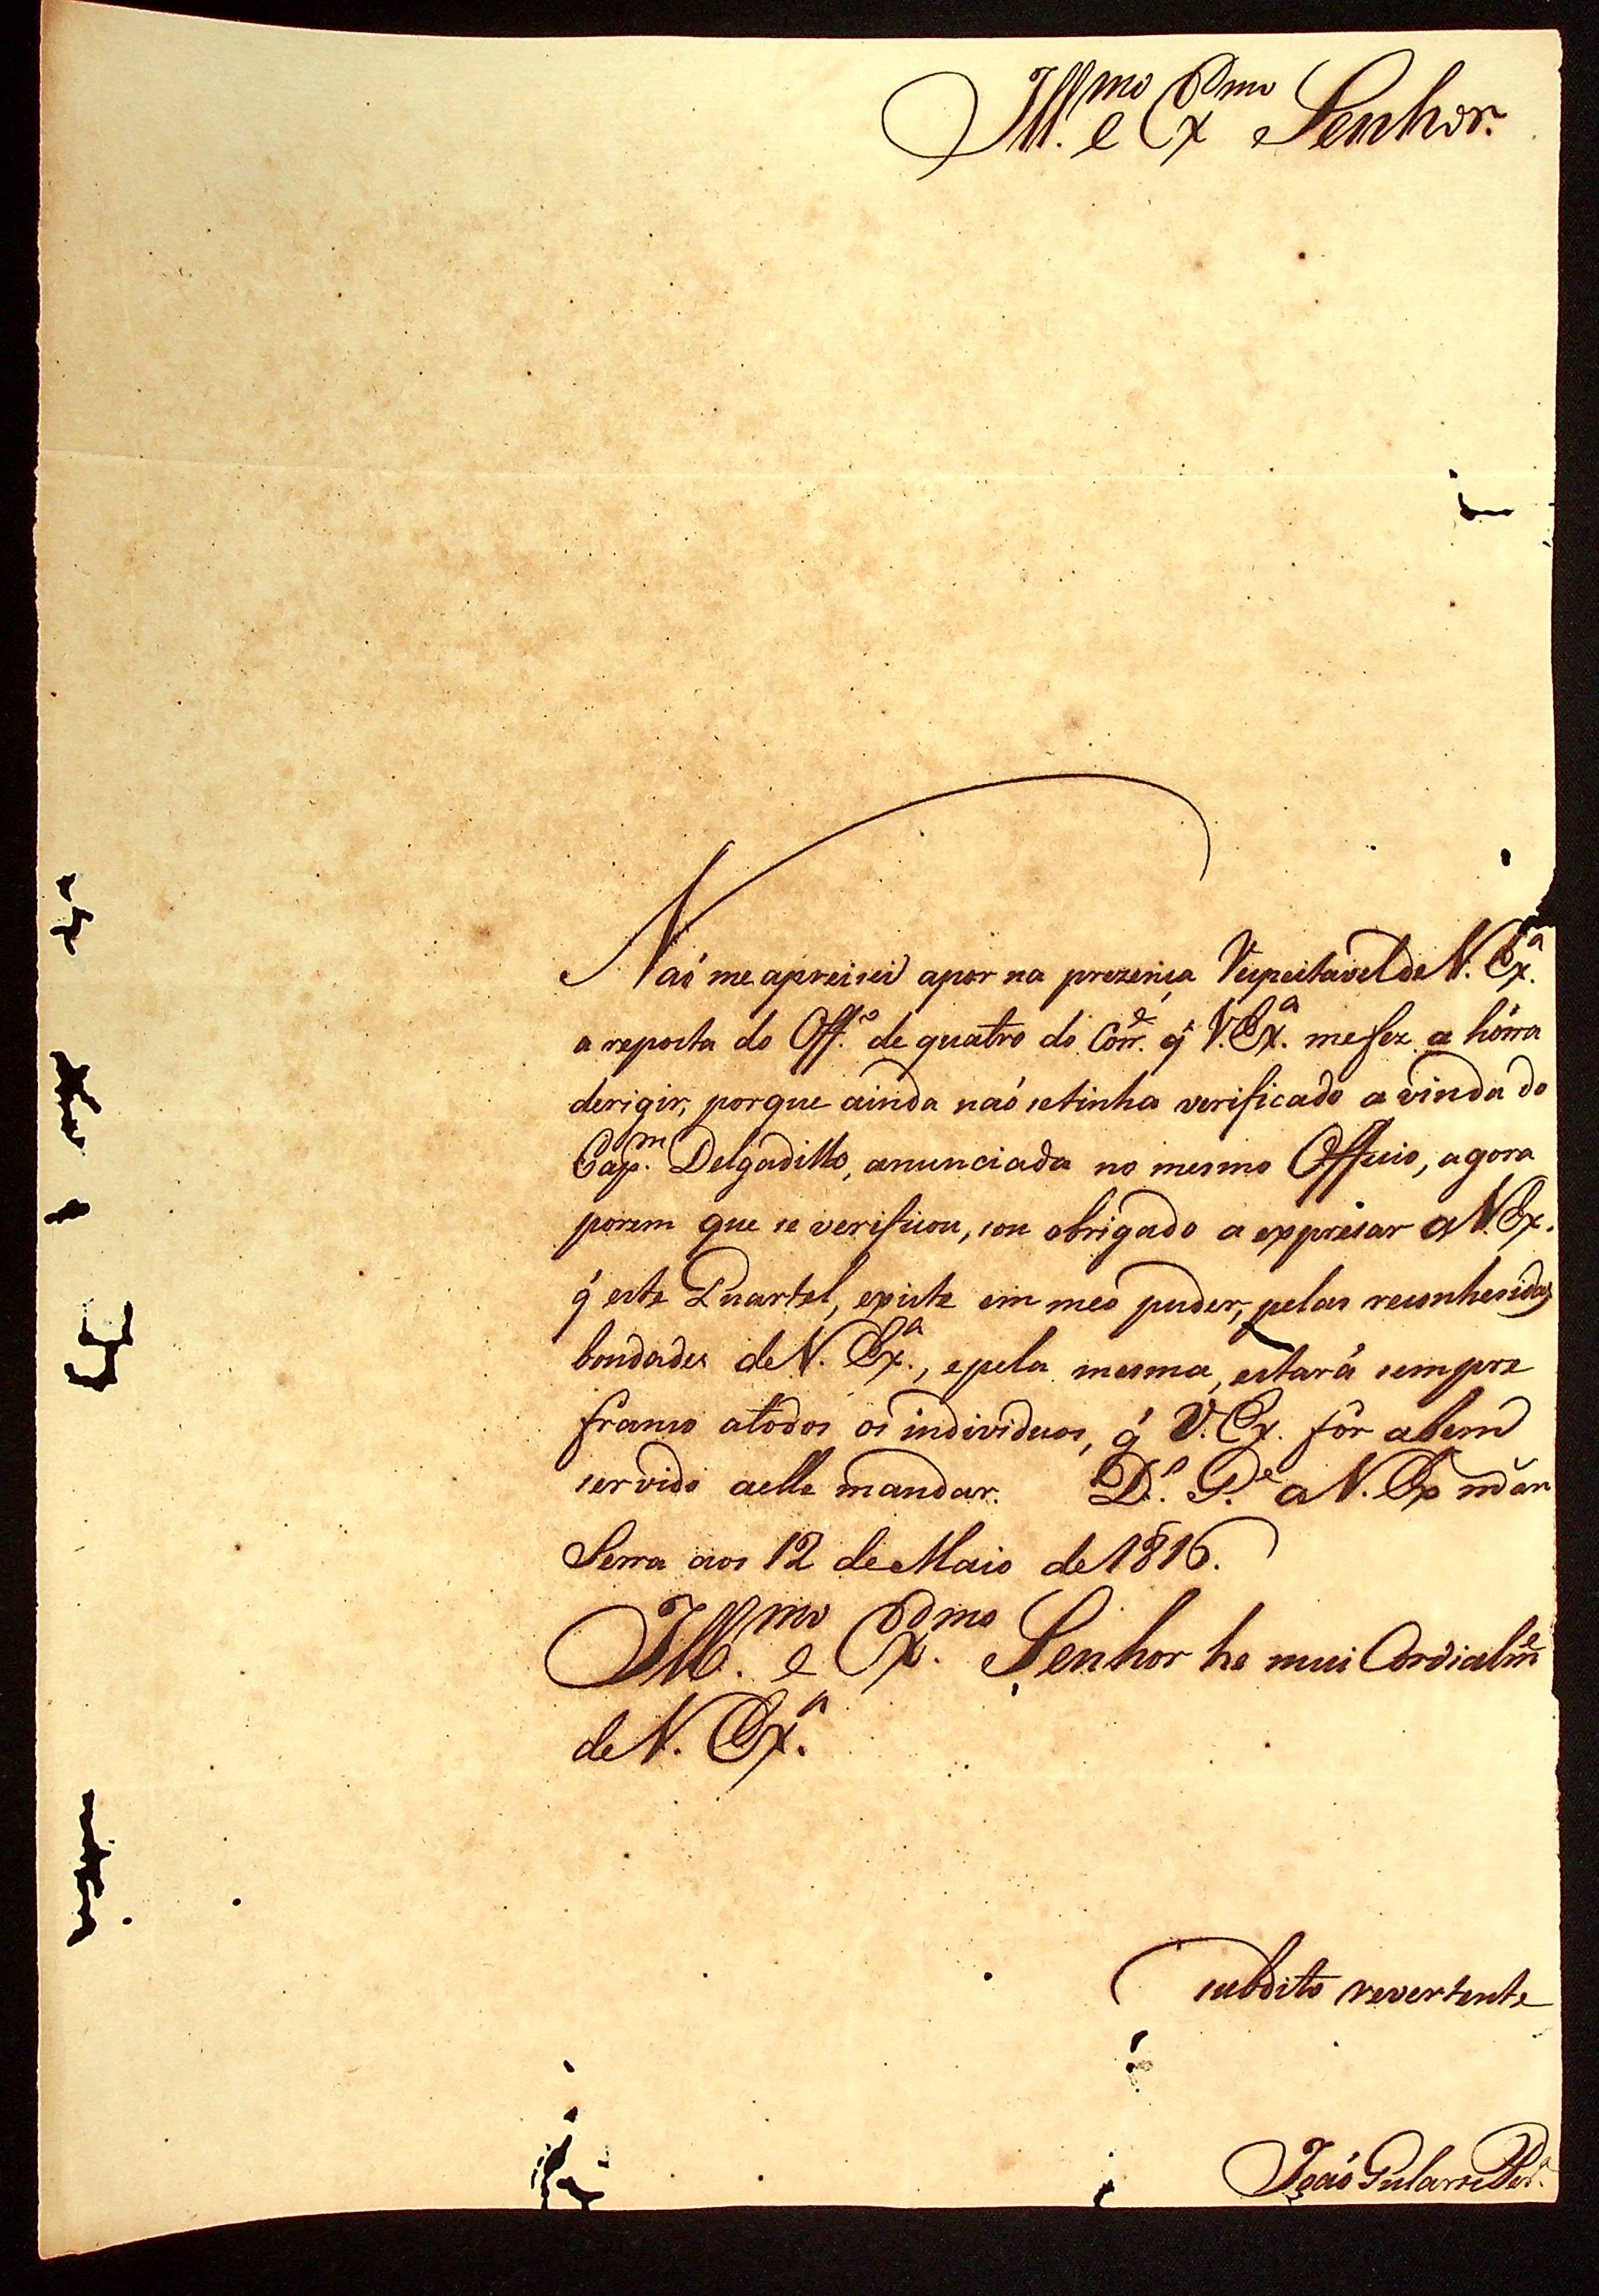 Ill.mo e Ex.mo Senhor.
Naó me apreisei apor na prezença Respeitavel de V. Ex.a
a reposta do Off.o de quatro do Corr.e q' V. Ex.a me fez a hónra
derigir, porque ainda naó se tinha verificado a vinda do
Cap.m Delgadillo, anunciada no mesmo Officio, agora
porem que se verificou, sou obrigado a expresar a V. Ex.
q' este Quartel, existe em meo puder, pelas reconhesidas
bondades de V. Ex.a, e pela mesma, estará sempre
franco atodos os individuos, q' V. Ex. fôr abem
servido aelle mandar. D.s G.e a V. Ex m.s an
Serra aos 12 de Maio de 1816.
Ill.mo e Ex.mo Senhor he mui Cordialm.e
de V. Ex.a
subdito reverente
Joaó Gularte